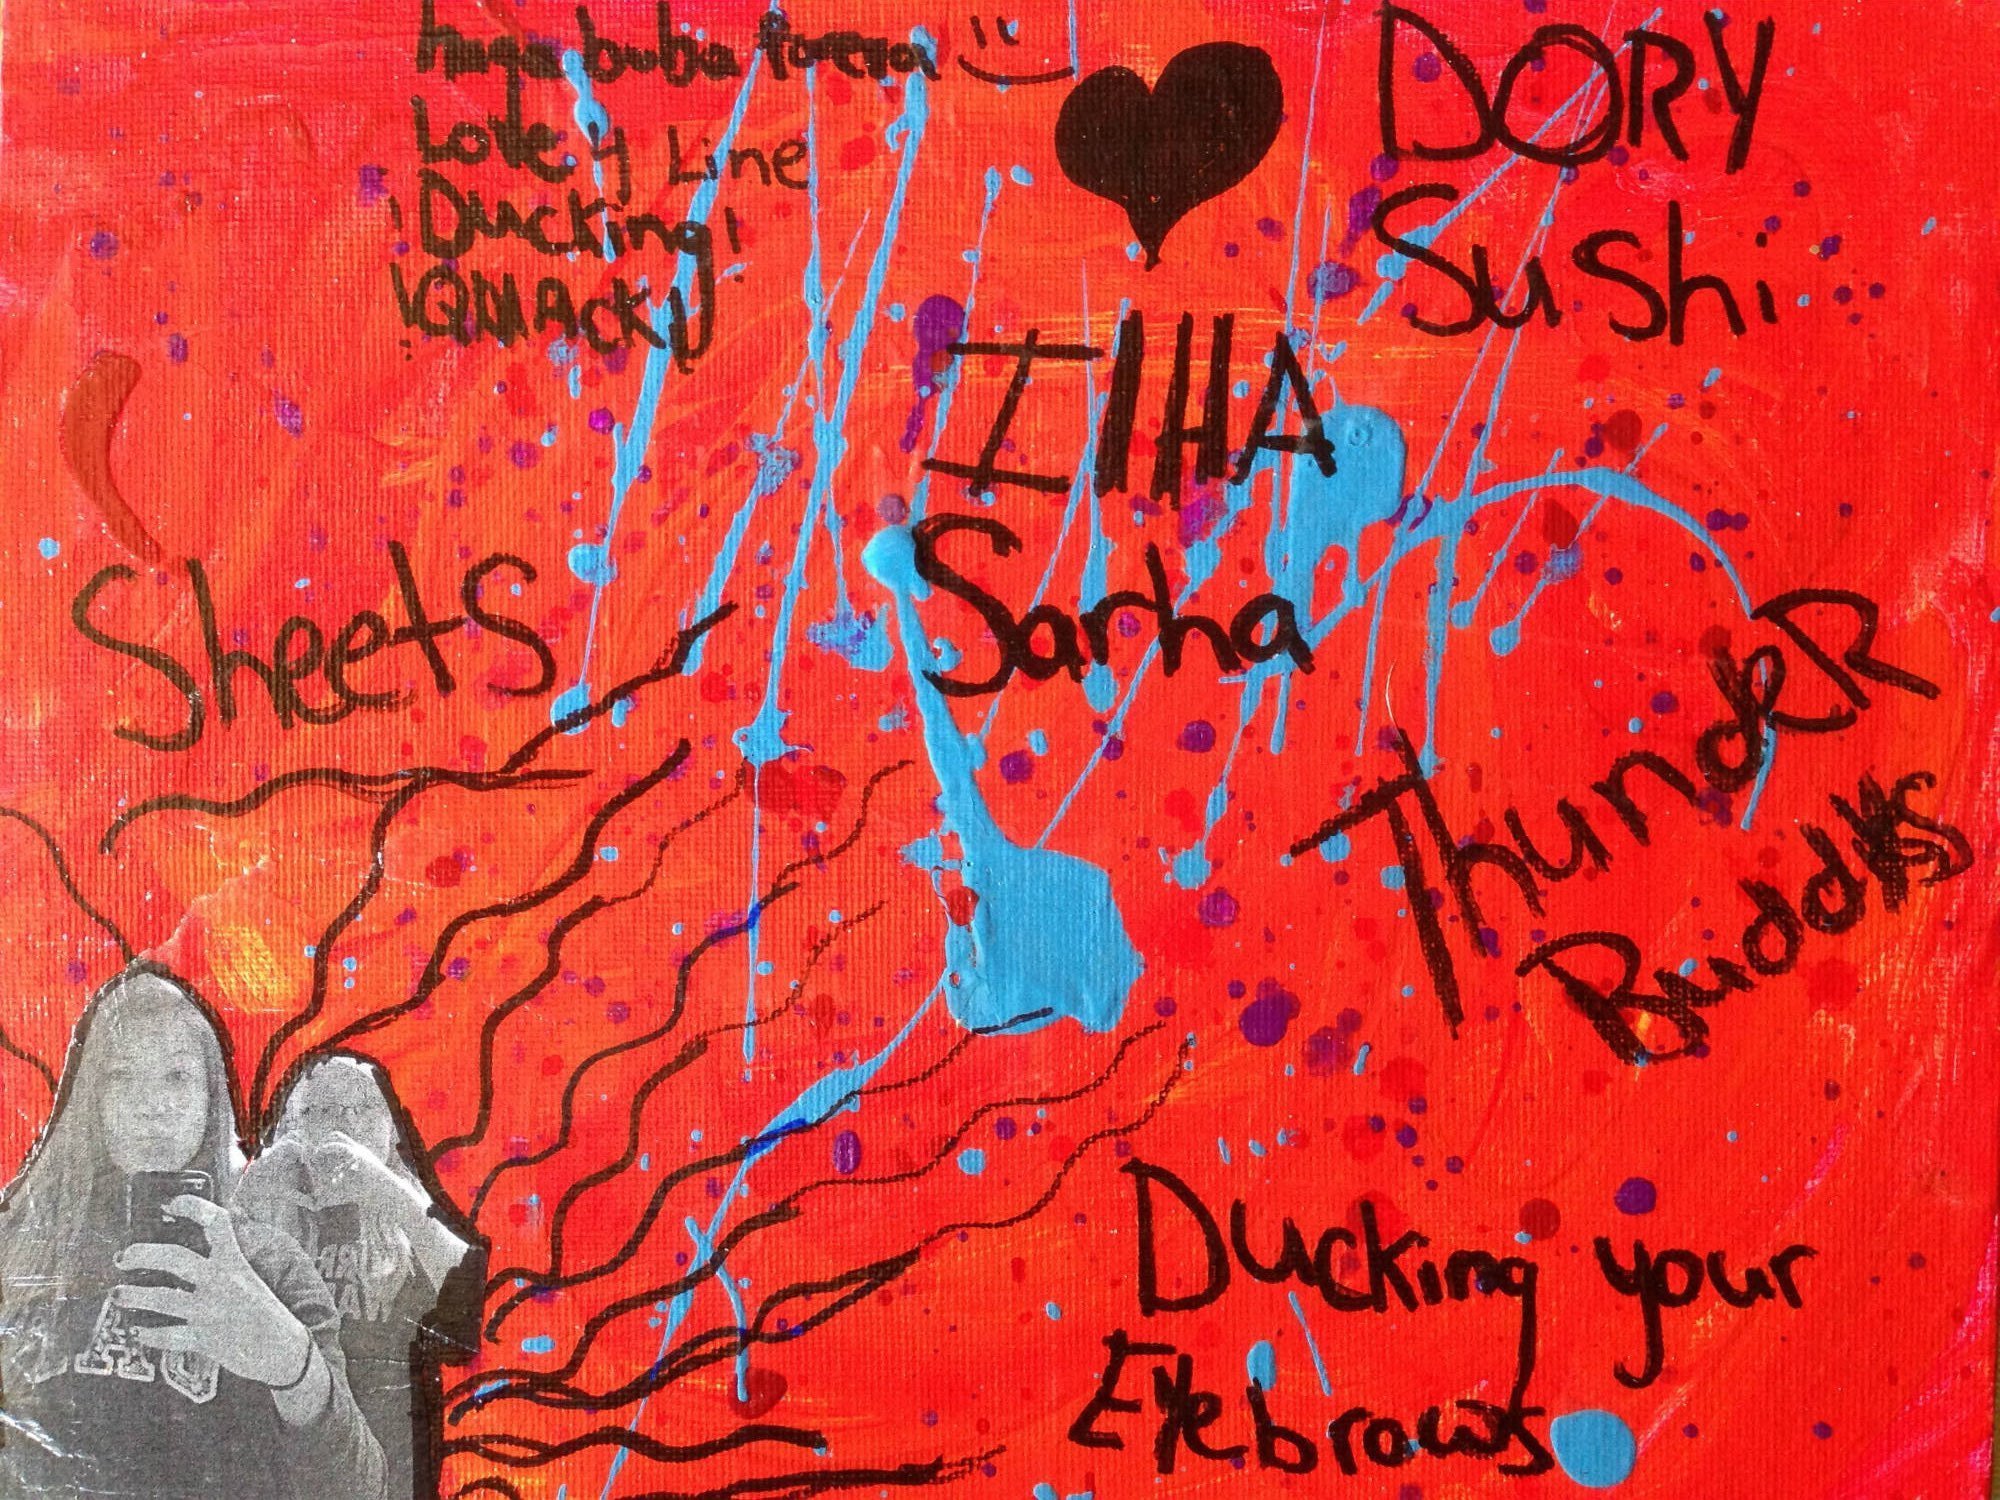 huga buba forever
Love y Line
¡Ducking!
¡QUACK!
DORY
Sushi
Sarha
Sheets
Thunder
Buddys
Ducking your
Eyebrows